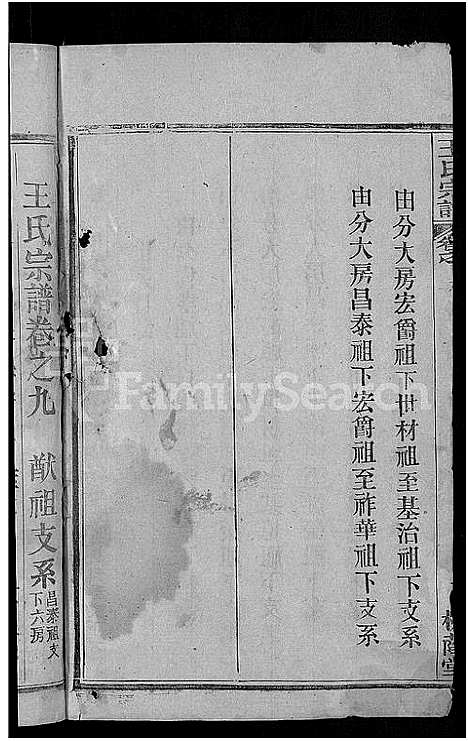 王氏宗譜
由分大房宏爵祖下世材祖至基治祖下支系
由分大房昌泰祖下宏爵祖至祚華祖下支系
王氏宗譜卷之九 猷祖支系 昌泰祖支
下六房
FamilySearch